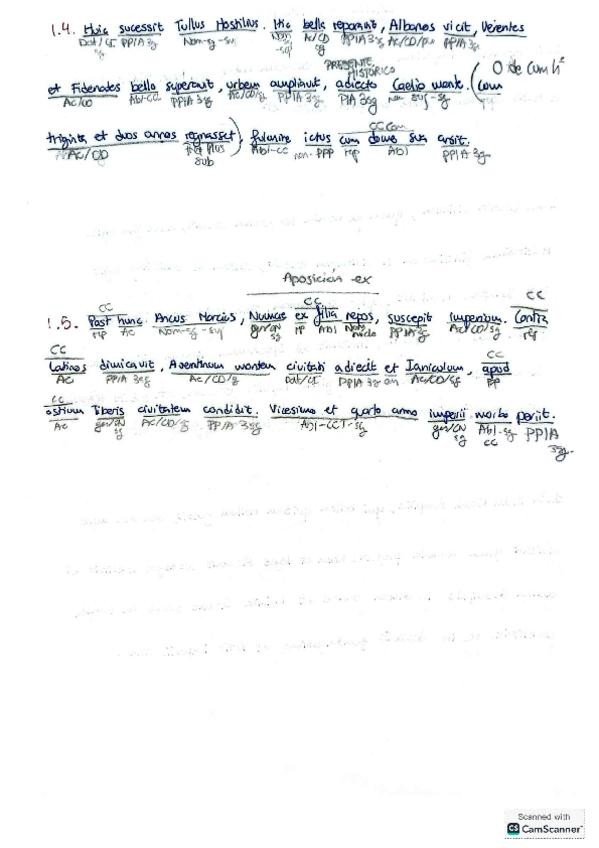 1.4. Huic sucessit Tullus Hostilius. Hic bella reparavit, Albanos vicit, Veientes
Dat/CI PPIA 3sg Nom-sg-suj Nom sg suj Ac/CD sg PPIA 3sg Ac/CD/plu PPIA 3sg
PRESENTE HISTÓRICO O de cum h²
et Fidenates bello superavit, urbem ampliavit, adiecto Caelio monte. (Cum
Ac/CD Abl-CC PPIA 3sg Ac/CD/sg PPIA 3sg PIA 3sg
CCCom
triginta et duos annos regnasset), fulmine ictus cum domo sua arsit.
Ac/CD Plus sub Abl-CC nom-PPP rp Abl PPIA 3sg
Aposición ex
CC CC CC
1.5. Post hunc Ancus Marcius, Numae ex filia nepos, suscepit imperium. Contra
rp Ac Nom-sg-suj gen/CN sg rp Abl PPIA 3g Ac/CD/sg rp
CC CC
Latinos dimicavit, Aventinum montem civitati adiecit et Ianiculum, apud
AC PPIA 3sg Ac/CD/sg Dat/CI PPIA 3sg Ac/CD/sg rp
CC
ostium Tiberis civitatem condidit. Vicesimo et quarto anno imperii morbo periit.
Ac gen/CN sg Ac/CD/sg PPIA 3sg Abl-CCT-sg gen/CN sg Abl-sg CC PPIA 3sg.
Scanned with
CS CamScanner